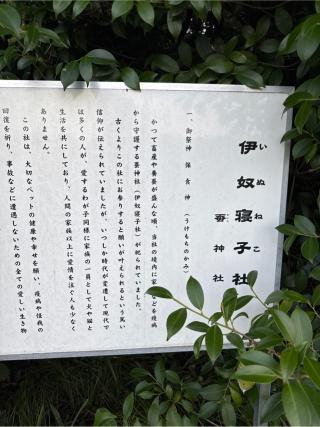 伊奴寝子社
いぬねこ
蚕神社
一、御祭神 保食神（うけもちのかみ）
かつて畜産や養蚕が盛んな頃、当社の境内に家などを疫病
から守護する蚕神社（伊奴寝子社）が祀られていました。
古くよりこの社にお参りすると願いが叶えられるという篤い
信仰が伝えられていましたが、いつしか時代が変遷して現代で
は多くの人が、愛するわが子同様に家族の一員として犬や猫と
生活を共にしており、人間の家族以上に愛情を注ぐ人も少なく
ありません。
この社は、大切なペットの健康や幸せを願い、疫病や怪我の
回復を祈り、事故などに遭遇しないための全ての愛しい生き物